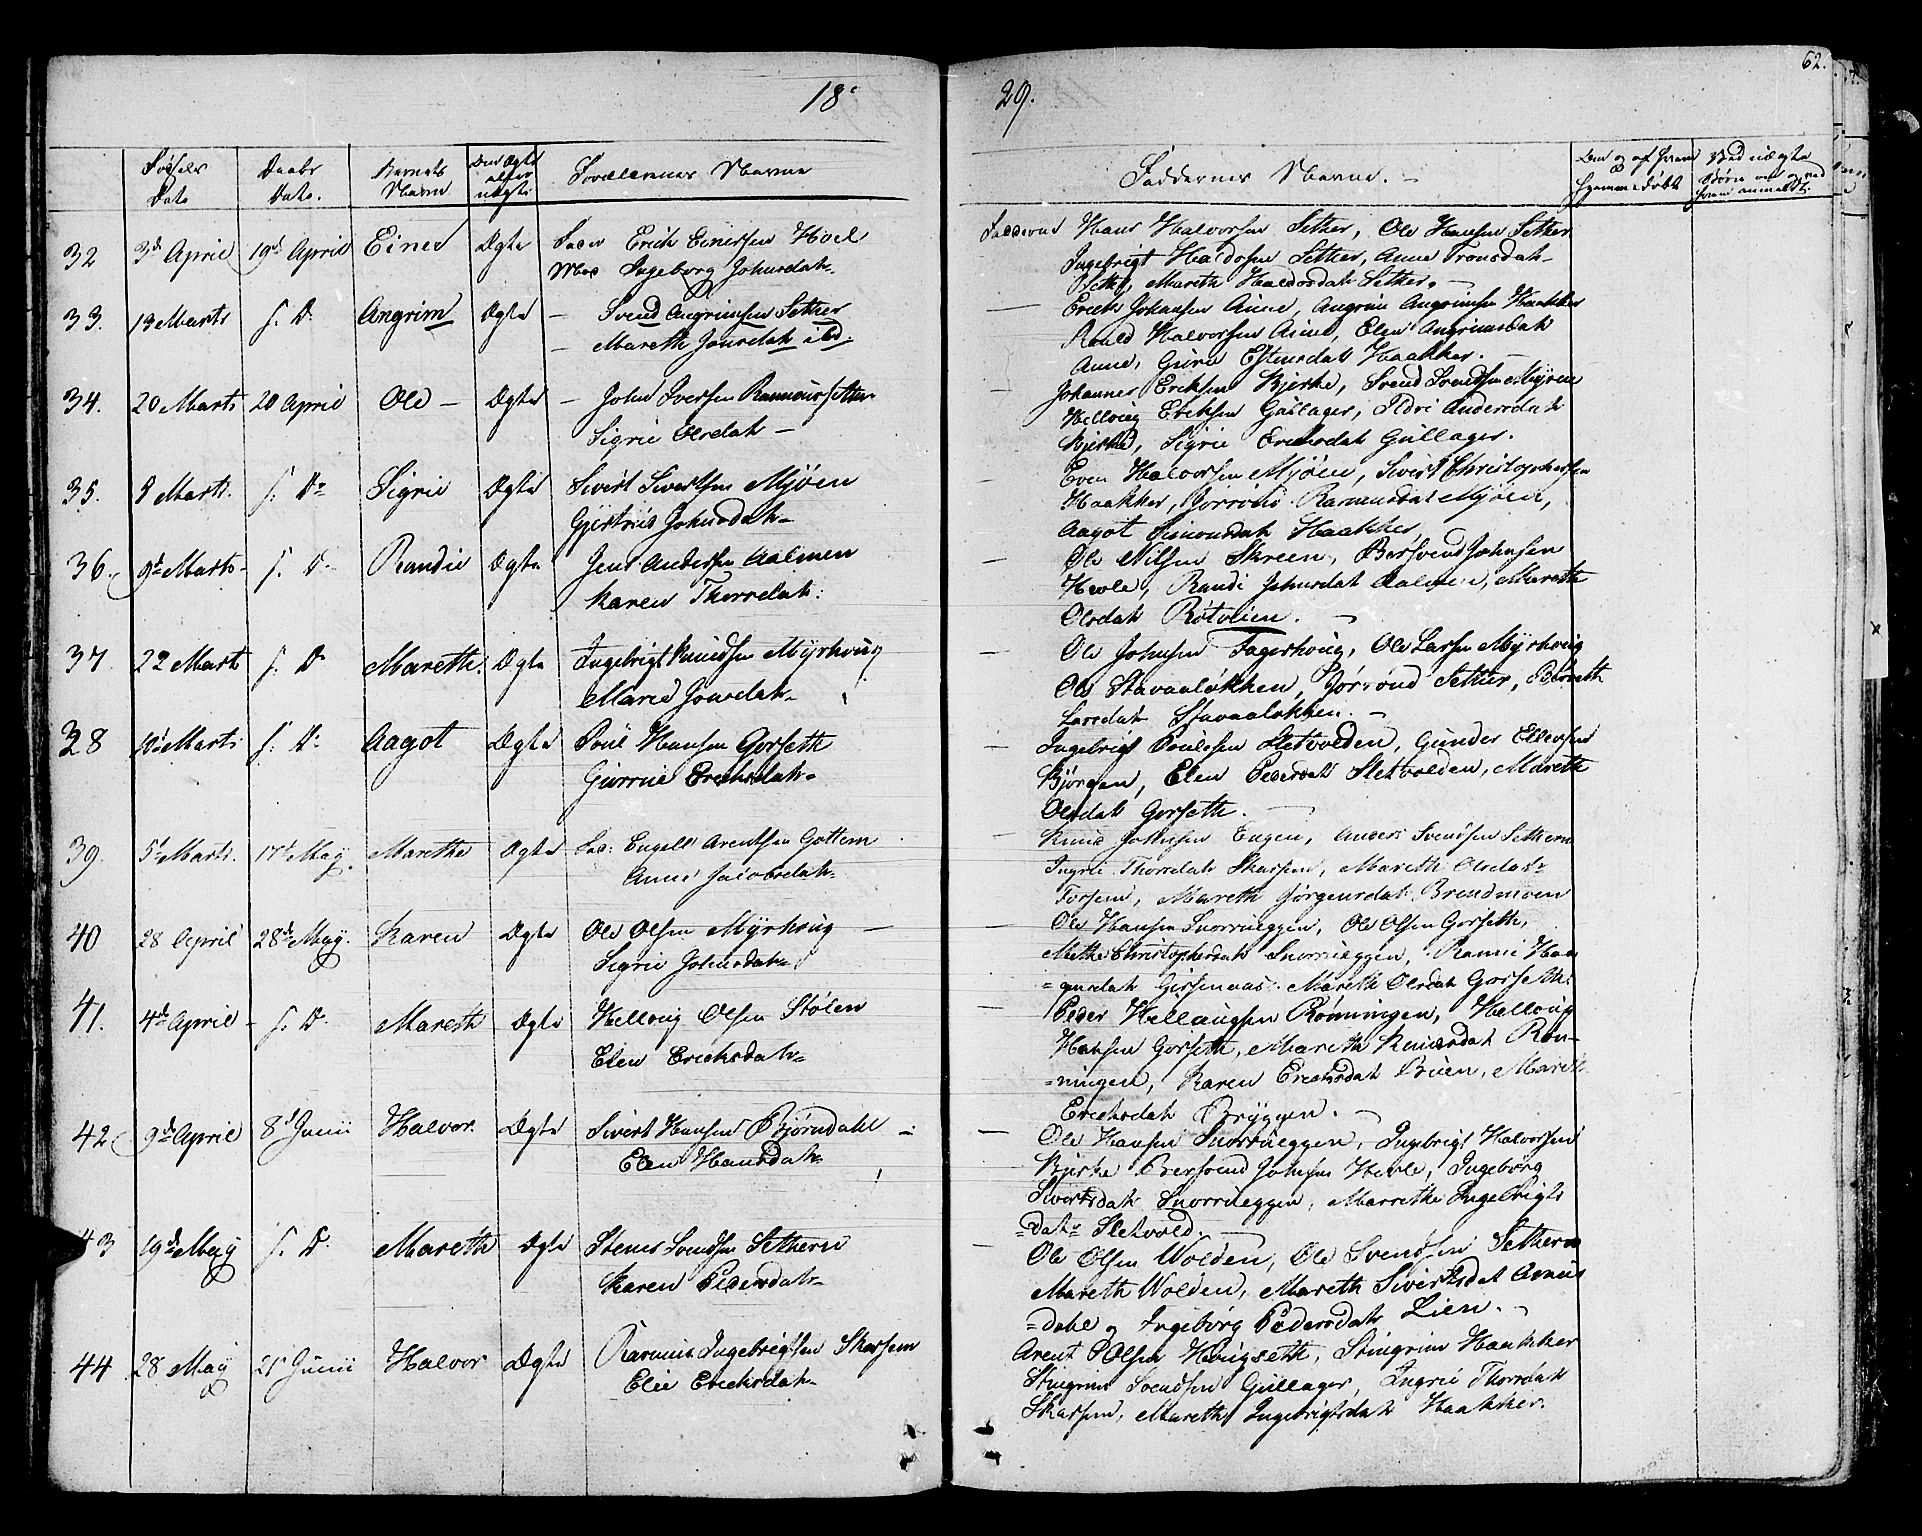 62.
18
29.
Fødsels Dato
Daabs Dato.
Barnets Navn
Om Ægte eller uægte
Forældrenes Navne
Faddernes Navne.
32 3de April 19de April Einer Ægte Fader Erich Einersen Hoel
Moe Ingeborg Johnsdatr.
Fadderne Hans Halvorsen Sether, Ole Hansen Sether
Ingebrigt Haldosen Sether, Anne Tronsdatr
Marith Haldosdatr Sether.
33. 13 Marts s. D. Angrim Ægte Svend Angrimsen Sether
Mareth Jonsdatr
Erich Johnsen Aune, Angrim Angrimsen Haakker
Roald Halvorsen Aune, Elen Angrimsdatr
Aune, Guru Estensdatr Haakker.
34. 20 Marts 20 April Ole Ægte John Iversen
Sigrie Olsdatr
Johannes Erichsen Bjerke, Svend Svendsen Myren
Hellvig Erichsen Gullager, Ildri Andersdatr
Bjerke, Sigrie Erichsdatr Gullager.
35. 8 Marts. s. D. Sigrie Ægte Sivert Sivertsen Mjøen
Gjertrud Johnsdatr
Even Halvorsen Mjøen, Sivert Christophersen
Haakker, Rasmusdatr Mjøen,
Aagot Simonsdatr Haakker.
36. 9de Marts s. D. Randie Ægte Jens Andersen Aalmen
Karen Thoresdatr.
Ole Nilsen Skreen, Bersvend Johnsen
Hevle, Randi Johnsdatr Aalmen, Mareth
Olsdatr Rotvelien.
37 22 Marts s. D. Marethe. Ægte Ingebrigt Knudsen Myrhoug
Marie Jonsdatr
Ole Johnsen Fagerhoug, Ole Larsen Myrhoug
Ole Stavaaløkken, Jorrond Sether, Bereth
Larsdatr Stavaaløkken.
38 Marts s. D. Aagot Ægte Poul Hansen Gorseth
Gurrue Erichsdatr
Ingebrigt Poulsen Sletvolden, Gunder Ellevsen
Bjørgen, Elen Pedersdatr Sletvolden, Mareth
Olsdatr Gorseth.
39. 5te Marts. 17de May. Marethe Ægte Engelb Arentsen Gottem
Anne Jacobsdatr
Knud Johnsen Engen, Anders Svendsen Setherne
Ingrie Thorsdatr Skarsem, Mareth Olsdatr
Mareth Jørgensdatr Brendmoen
40 28 April 28de May. Karen Ægte Ole Olsen Myrhoug
Sigrie Johnsdatr
Ole Hansen Snorrueggen, Ole Olsen Gorseth,
Methe Christophersdatr Snorrueggen, Ranni Haa-
=gensdatr Mareth Olsdatr Gorseth
41. 4de April s. D. Mareth Ægte Hellvug Olsen Stølen
Elen Erichsdatr
Peder Hellaugsen Rønningen, Hellvug
Hansen Gorseth, Mareth Knudsdatr Røn-
=ningen, Karen Erichsdatr Buen, Mareth
Erichsdatr Bryggen.
42 9de April 8de Junii Halvor. Ægte Sivert Hansen Bjørndahl
Elen Hansdatr
Ole Hansen Snorrueggen, Ingebrigt Halvorsen
Bjerke Bersvend Johnsen Hevle, Ingeborg
Sivertsdatr Snorrueggen, Marrethe Ingebrigts
=datr Sletvold.
43 19de May s. D. Mareth Ægte Stener Svendsen Setherne
Karen Pedersdatr
Ole Olsen Wolden, Ole Svendsen Setherne
Mareth Wolden, Mareth Sivertsdatr
=dahl og Ingeborg Pedersdatr Lien.
44 28 May 21 Junii Halvor Ægte Rasmus Ingebrigtsen Skarsem
Elie Erichsdatr
Arent Olsen Hougseth, Stingrim Haakker
Stingrim Svendsen Gullager, Ingrie Thorsdatr
Skarsem, Mareth Ingebrigtsdatr Haakker.